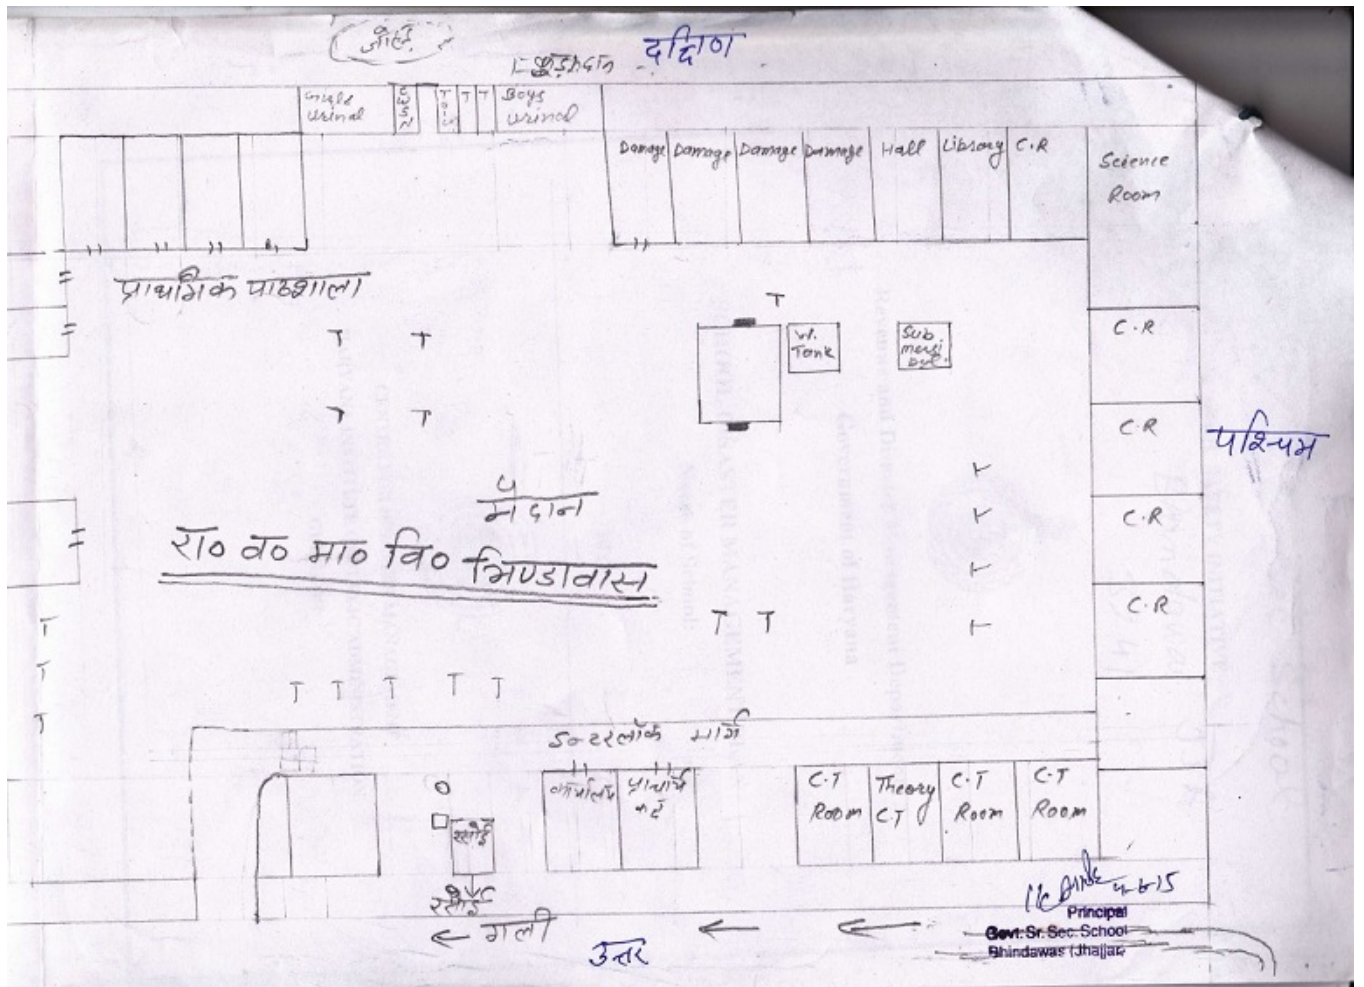 जोहड़
कूड़ादान
दक्षिण
Girls
urinal
CWSN
Toil
T
T
Boys
urinal
Damage
Damage
Damage
Damage
Hall
Library
C.R
Science
Room
प्राथमिक पाठशाला
T
T
T
T
T
W.
Tank
Sub
mersi
bel.
C.R
C.R
C.R
C.R
पश्चिम
मैदान
रा० व० मा० वि० भिण्डावास
T
T
T
T
T
T
T
T
T
T
T
T
T
T
इन्टरलॉक मार्ग
कार्यालय
प्राचार्य
कक्ष
C.T
Room
Theory
C.T
C.T
Room
C.T
Room
रसोई
रसोई
गली
उत्तर
Principal
Govt. Sr. Sec. School
Bhindawas (Jhajjar)